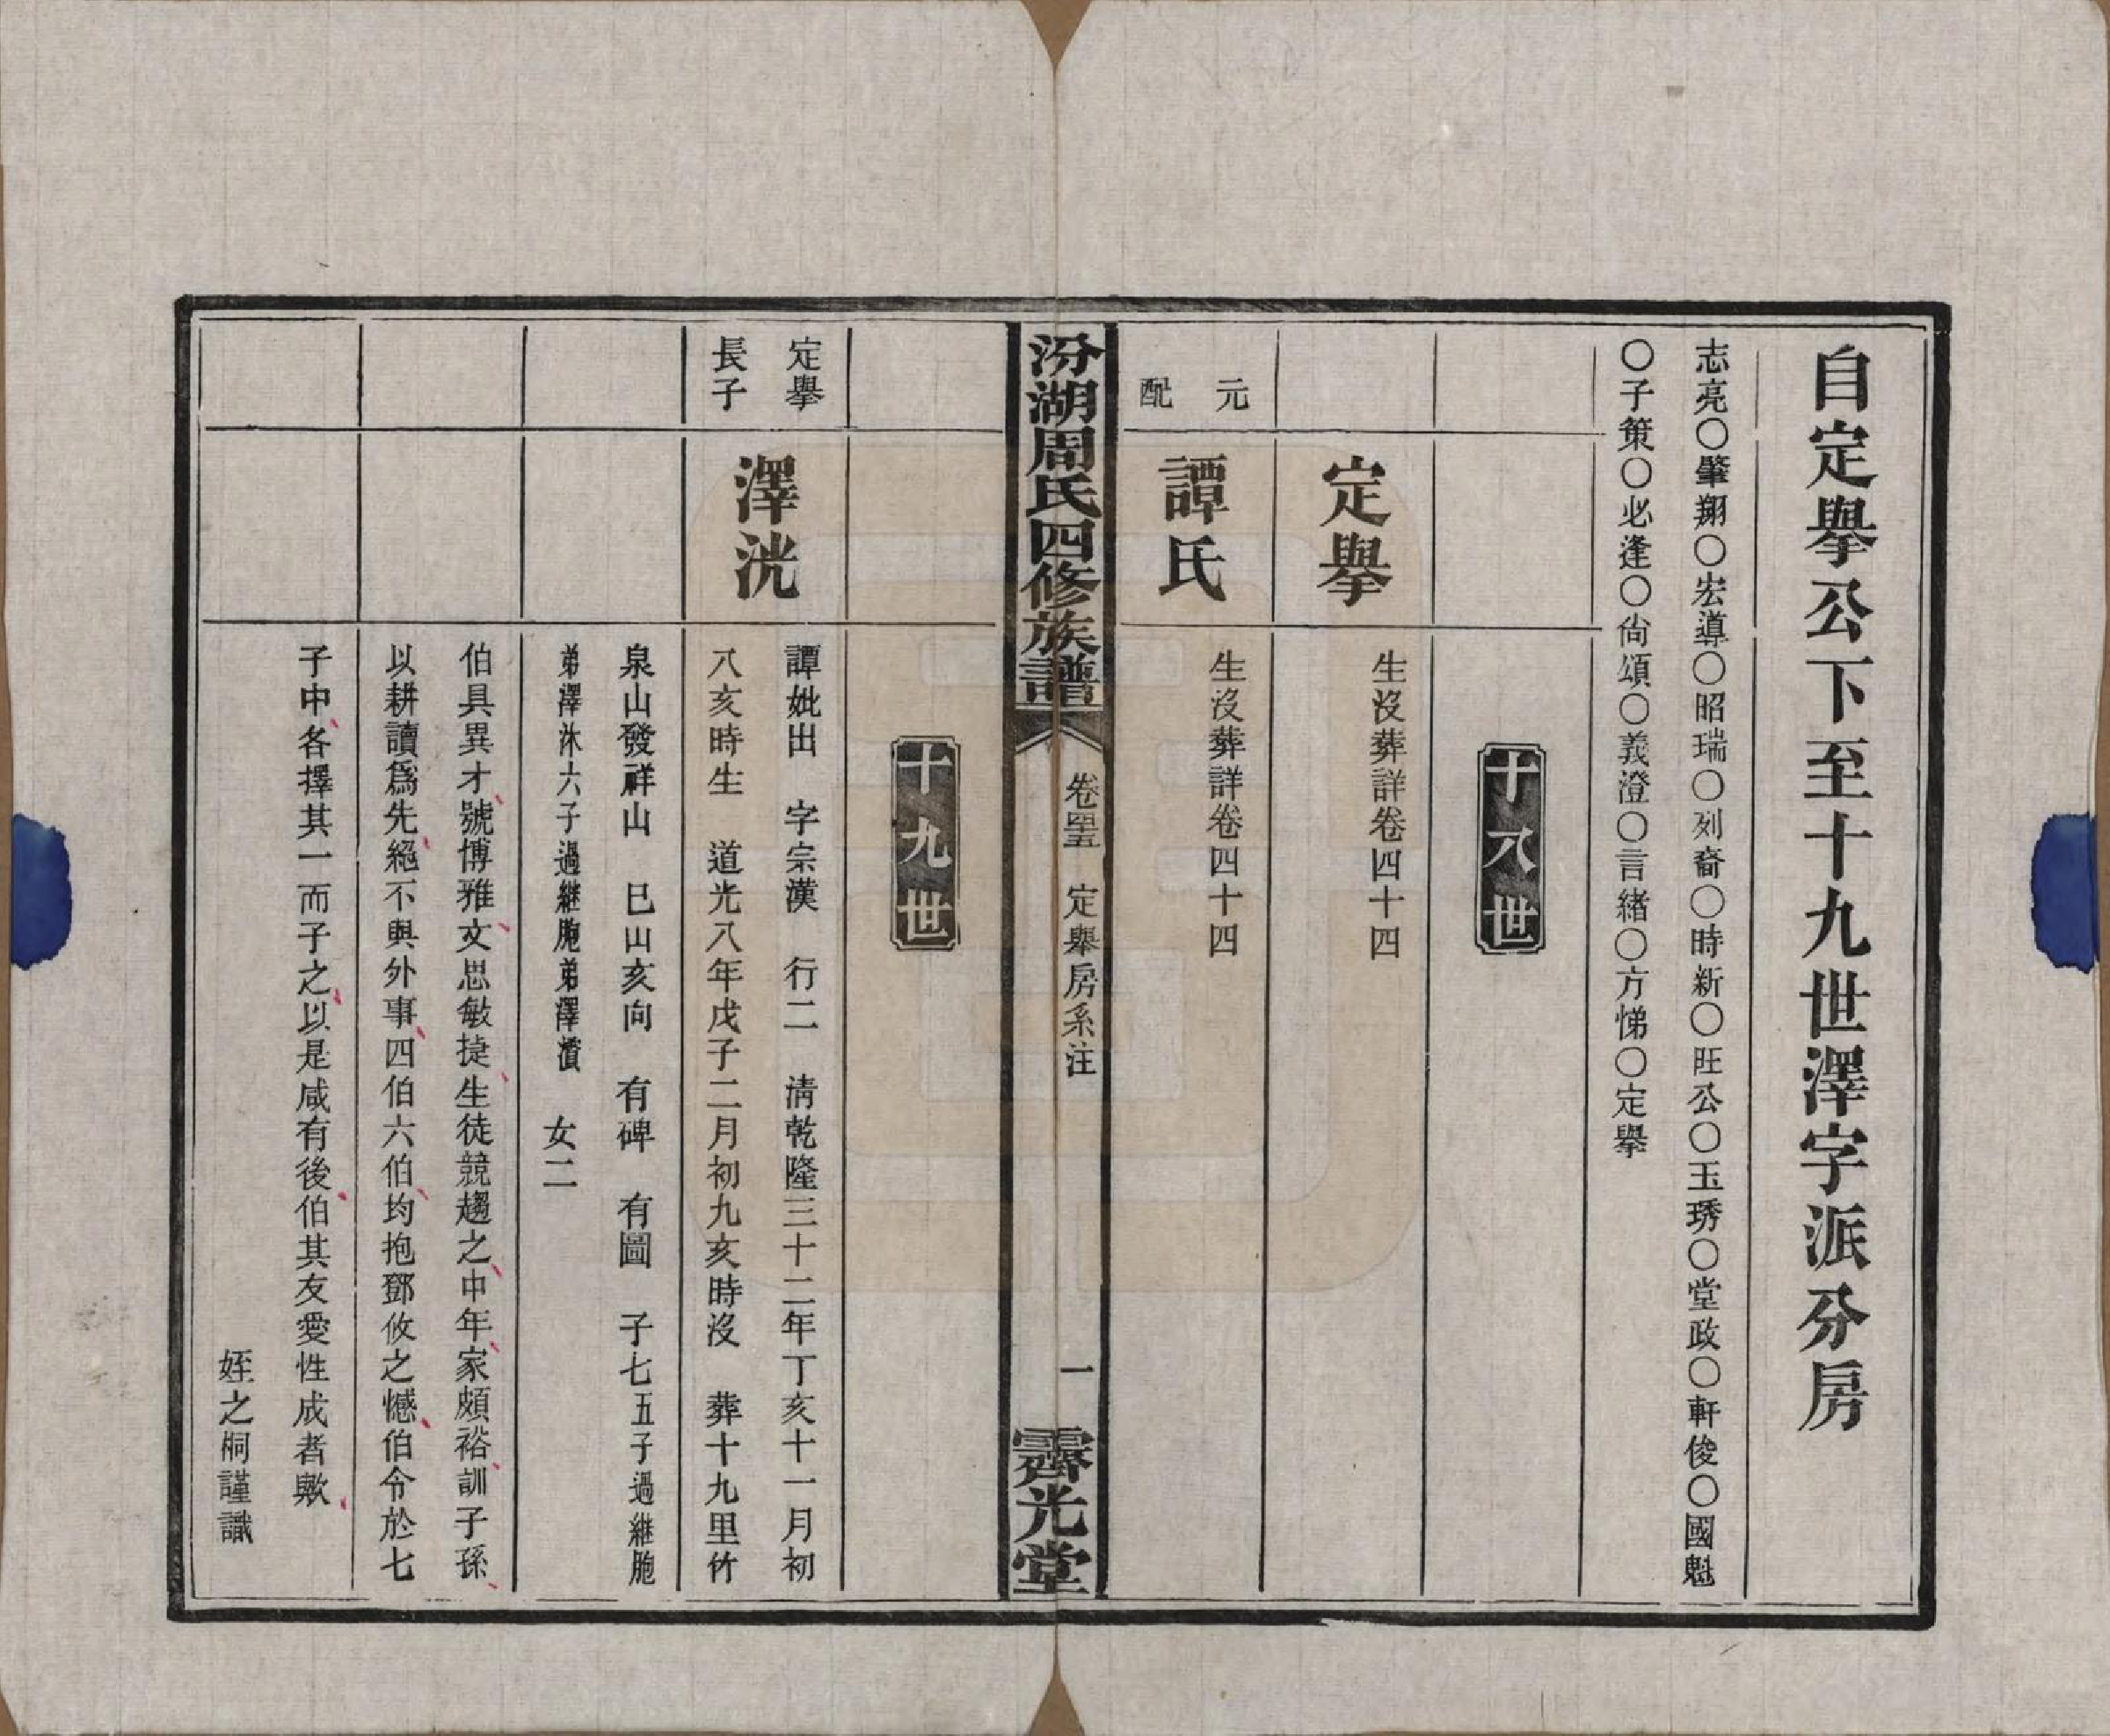 自定擧公下至十九世澤字派分房
志亮〇肇翔〇宏導〇昭瑞〇列裔〇時新〇旺公〇玉琇〇堂政〇軒俊〇國魁
〇子策〇必逢〇尙頌〇義澄〇言緒〇方悌〇定擧
十八世
定擧
生沒葬詳卷四十四
元配
譚氏
生沒葬詳卷四十四
汾湖周氏四修族譜
卷四十五 定擧房系注
一
霽光堂
十九世
定擧
長子
澤洸
譚妣出 字宗漢 行二 淸乾隆三十二年丁亥十一月初
八亥時生 道光八年戊子二月初九亥時沒 葬十九里竹
泉山發祥山 巳山亥向 有碑 有圖 子七五子過繼胞
弟澤沐六子過繼胞弟澤濆 女二
伯具異才號博雅文思敏捷生徒競趨之中年家頗裕訓子孫
以耕讀爲先絕不與外事四伯六伯均抱鄧攸之憾伯令於七
子中各擇其一而子之以是咸有後伯其友愛性成者歟
姪之桐謹識